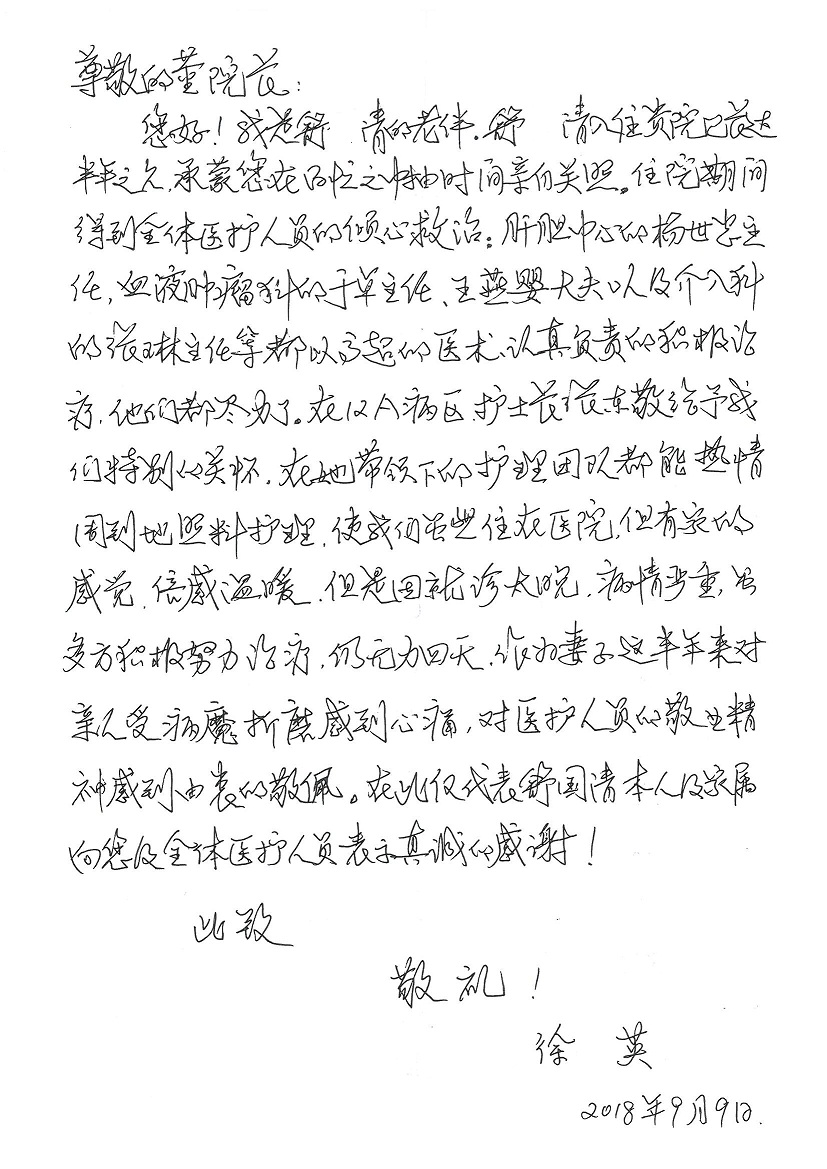 尊敬的董院长：
您好！我是舒 清的老伴.舒 清入住贵院已长达
半年之久,承蒙您在百忙之中抽时间亲自关照。住院期间
得到全体医护人员的倾心救治：肝胆中心的杨世忠主
任,血液肿瘤科的于草主任、王燕婴大夫以及介入科
的张琳主任等都以高超的医术,认真负责的积极治
疗,他们都尽力了。在12A病区,护士长张东敬给予我
们特别的关怀,在她带领下的护理团队都能热情
周到地照料护理,使我们虽然住在医院,但有家的
感觉,倍感温暖,但是因就诊太晚,病情严重,虽
多方积极努力治疗,仍无力回天,作为妻子这半年来对
亲人受病魔折磨感到心痛,对医护人员的敬业精
神感到由衷的敬佩。在此仅代表舒国清本人及家属
向您及全体医护人员表示真诚的感谢！
此致
敬礼！
徐 英
2018年9月9日.